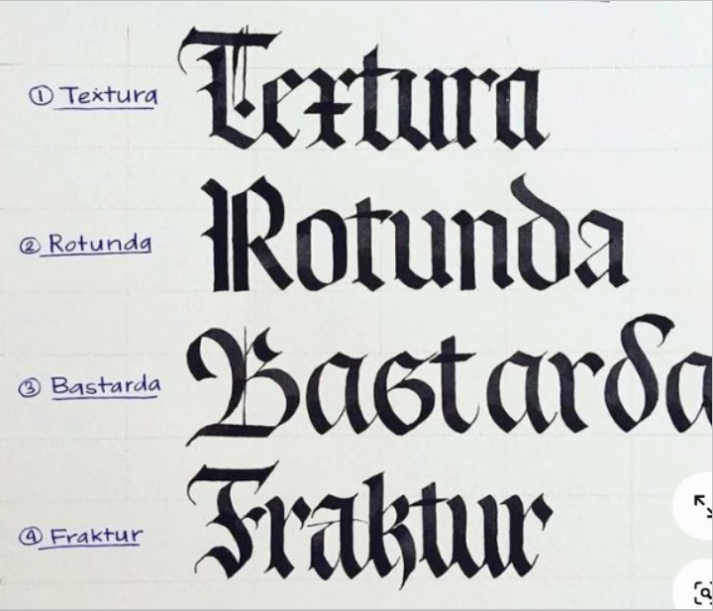 ① Textura
Textura
② Rotunda
Rotunda
③ Bastarda
Bastarda
④ Fraktur
Fraktur